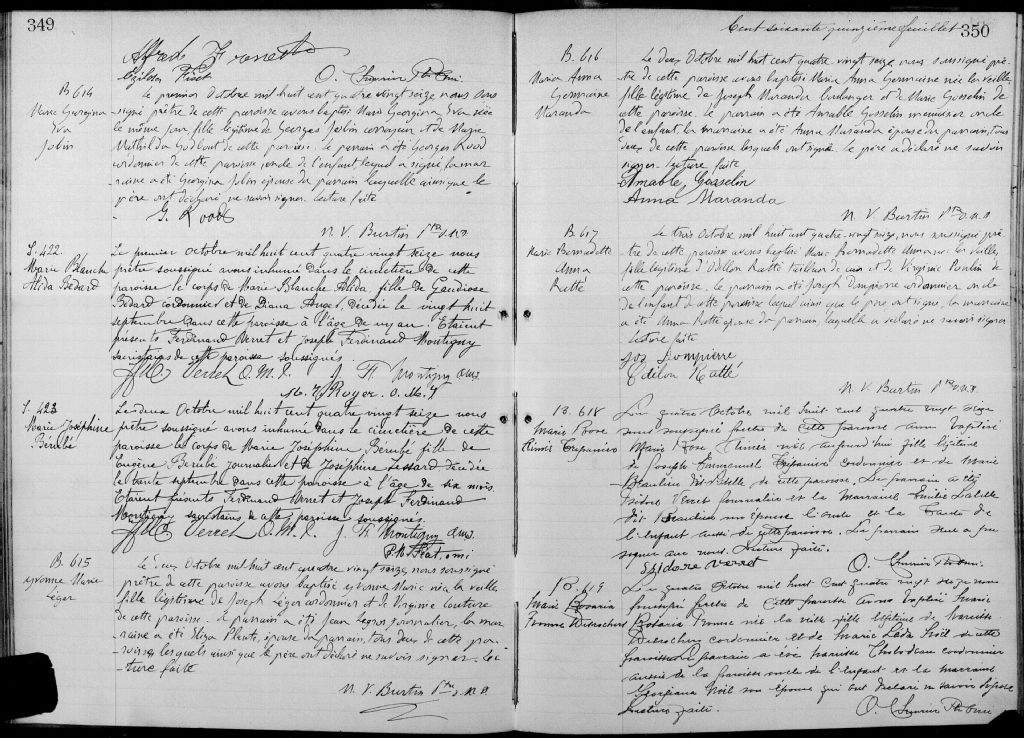 349
B. 614
Marie Georgina
Eva
Jolin
Le premier Octobre mil huit cent quatre vingt seize nous sous
signé prêtre de cette paroisse avons baptisé Marie Georgina Eva née
le même jour fille légitime de Georges Jolin corroyeur et de Marie
Mathilda Godbout de cette paroisse. le parrain a été Georges Rood
cordonnier de cette paroisse, oncle de l'enfant lequel a signé, la mar
raine a été Georgina Jolin épouse du parrain laquelle ainsi que le
père ont déclaré ne savoir signer. lecture faite
G. Rood
N. V. Burtin Ptre O.M.I.
S. 422.
Marie Blanche
Alida Bédard
Le premier octobre mil huit cent quatre vingt seize nous
prêtre soussigné avons inhumé dans le cimetière de cette
paroisse le corps de Marie Blanche Alida fille de Gaudiose
Bédard cordonnier et de Diana Auger, décédée le vingt huit
septembre dans cette paroisse à l'âge de un an. Etaient
présents Ferdinand Verret et Joseph Ferdinand Montigny
sacristains de cette paroisse soussignés.
Verret O.M.I. J. F. Montigny
Royer. O.M.I
S. 423
Marie Joséphine
Bérubé
Le deux Octobre mil huit cent quatre vingt seize nous
prêtre soussigné avons inhumé dans le cimetière de cette
paroisse le corps de Marie Joséphine Bérubé fille de
Eugène Bérubé journalier et de Joséphine Lessard décédée
le trente septembre dans cette paroisse à l'âge de six mois.
Etaient présents Ferdinand Verret et Joseph Ferdinand
Montigny sacristains de cette paroisse soussignés
Verret O.M.I. J. F. Montigny
B. 615
Yvonne Marie
Léger
Le deux Octobre mil huit cent quatre vingt seize, nous soussigné
prêtre de cette paroisse avons baptisé Yvonne Marie née la veille
fille légitime de Joseph Léger cordonnier et de Virginie Couture
de cette paroisse. le parrain a été Jean Legros journalier, la mar
raine a été Eliza Plante, épouse du parrain, tous deux de cette pa
roisse, lesquels ainsi que le père ont déclaré ne savoir signer. lec
ture faite
N. V. Burtin Ptre O.M.I.
Cent soixante quinzième feuillet 350
B. 616
Maria Anna
Germaine
Maranda
Le deux Octobre mil huit cent quatre vingt seize nous soussigné prê
tre de cette paroisse avons baptisé Marie Anna Germaine née la veille,
fille légitime de Joseph Maranda boulanger et de Marie Gosselin de
cette paroisse. le parrain a été Amable Gosselin menuisier oncle
de l'enfant, la marraine a été Anna Maranda épouse du parrain, tous
deux de cette paroisse lesquels ont signé. le père a déclaré ne savoir
signer. lecture faite
Amable Gosselin
Anna Maranda
N. V. Burtin Ptre O.M.I
B. 617
Marie Bernadette
Anna
Ratté
Le trois Octobre mil huit cent quatre-vingt seize, nous soussigné prê
tre de cette paroisse avons baptisé Marie Bernadette Anna née la veille,
fille légitime d'Odilon Ratté tailleur de cuir et de Virginie Poulin de
cette paroisse. le parrain a été Joseph Dompierre cordonnier oncle
de l'enfant de cette paroisse lequel ainsi que le père ont signé, la marraine
a été Anna Ratté épouse du parrain, laquelle a déclaré ne savoir signer
lecture faite
Jos Dompierre
Odilon Ratté
N. V. Burtin Ptre O.M.I.
B. 618
Marie Rose
Trépanier
Le quatre Octobre mil huit cent quatre vingt seize
nous soussigné prêtre de cette paroisse avons baptisé
Marie Rose née aujourd'hui fille légitime
de Joseph Emmanuel Trépanier cordonnier et de Marie
de cette paroisse. Le parrain a été
Isidore Verret journalier et la marraine
son épouse l'oncle et la tante de
l'enfant aussi de cette paroisse. Le parrain seul a pu
signer avec nous. Lecture faite.
Isidore Verret
B. 619
Marie Rosaria
Yvonne
Le quatre Octobre mil huit cent quatre vingt seize nous
soussigné prêtre de cette paroisse avons baptisé Marie
Rosaria Yvonne née la veille fille légitime de
cordonnier et de Marie Léda Noël de cette
paroisse Le parrain a été cordonnier
aussi de la paroisse oncle de l'enfant et la marraine
Georgiana Noël son épouse qui ont déclaré ne savoir signer
Lecture faite.